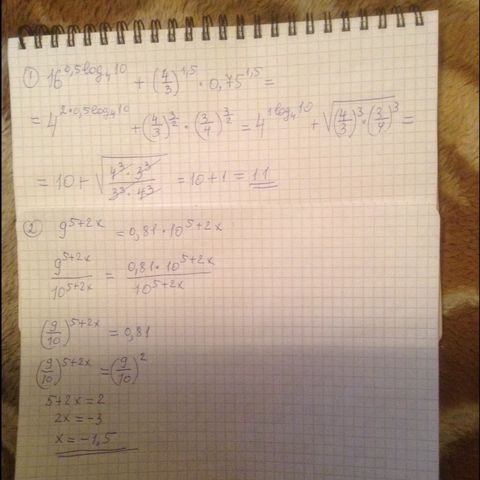 ① 16^{0,5log₄10} + (4/3)^{1,5} · 0,75^{1,5} =
= 4^{2·0,5log₄10} + (4/3)^{3/2} · (3/4)^{3/2} = 4^{1log₄10} + √((4/3)³·(3/4)³) =
= 10 + √((4³·3³)/(3³·4³)) = 10 + 1 = 11
② 9^{5+2x} = 0,81 · 10^{5+2x}
9^{5+2x}/10^{5+2x} = 0,81·10^{5+2x}/10^{5+2x}
(9/10)^{5+2x} = 0,81
(9/10)^{5+2x} = (9/10)²
5+2x = 2
2x = -3
x = -1,5